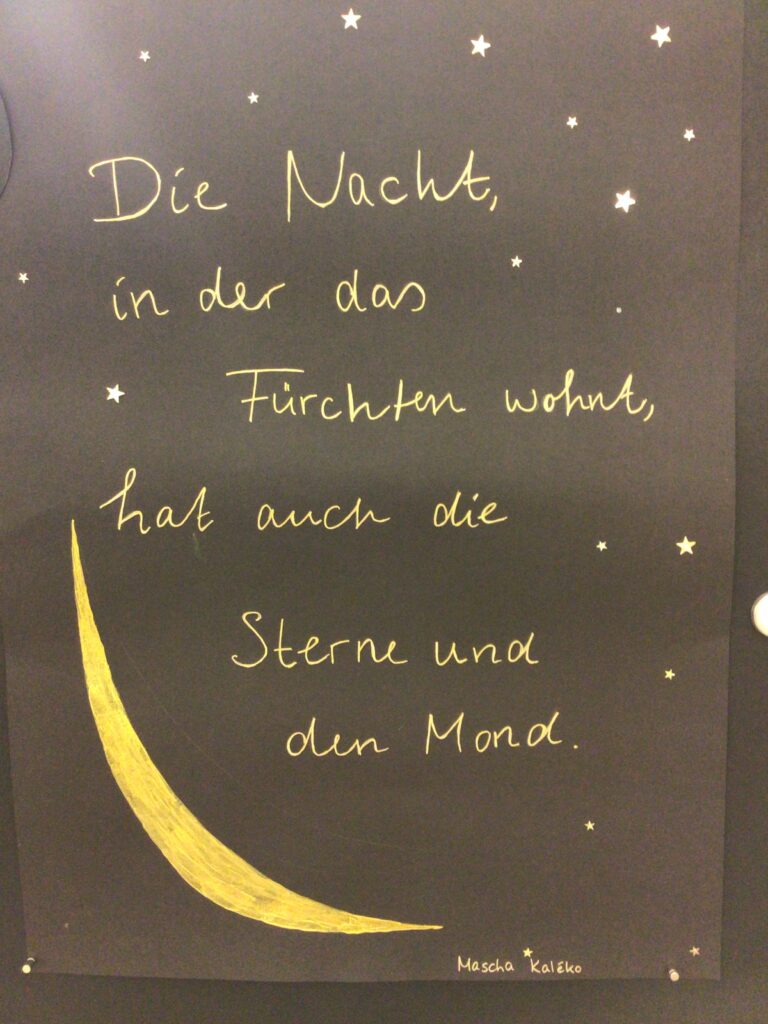 Die Nacht,
in der das
Fürchten wohnt,
hat auch die
Sterne und
den Mond.
Mascha Kaléko